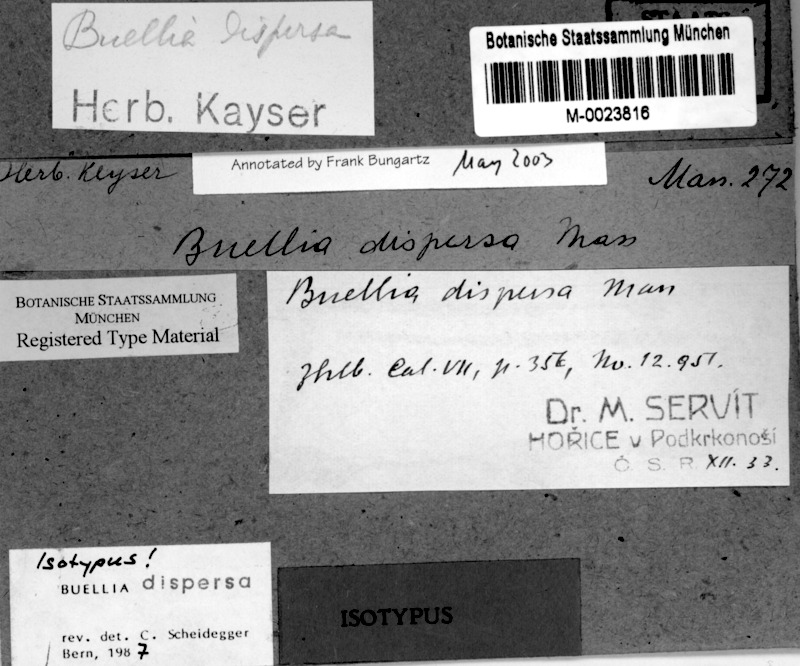 Buellia dispersa
Herb. Kayser
Botanische Staatssammlung München
M-0023816
Annotated by Frank Bungartz May 2003
Herb. Keyser
Mass. 272
Buellia dispersa Mass
BOTANISCHE STAATSSAMMLUNG
MÜNCHEN
Registered Type Material
Buellia dispersa Mass
Cat. VII, p. 354, No. 12.951.
Dr. M. SERVÍT
HOŘICE v Podkrkonoší
Č. S. R. XII. 33.
Isotypus!
BUELLIA dispersa
rev. det. C. Scheidegger
Bern, 1987
ISOTYPUS